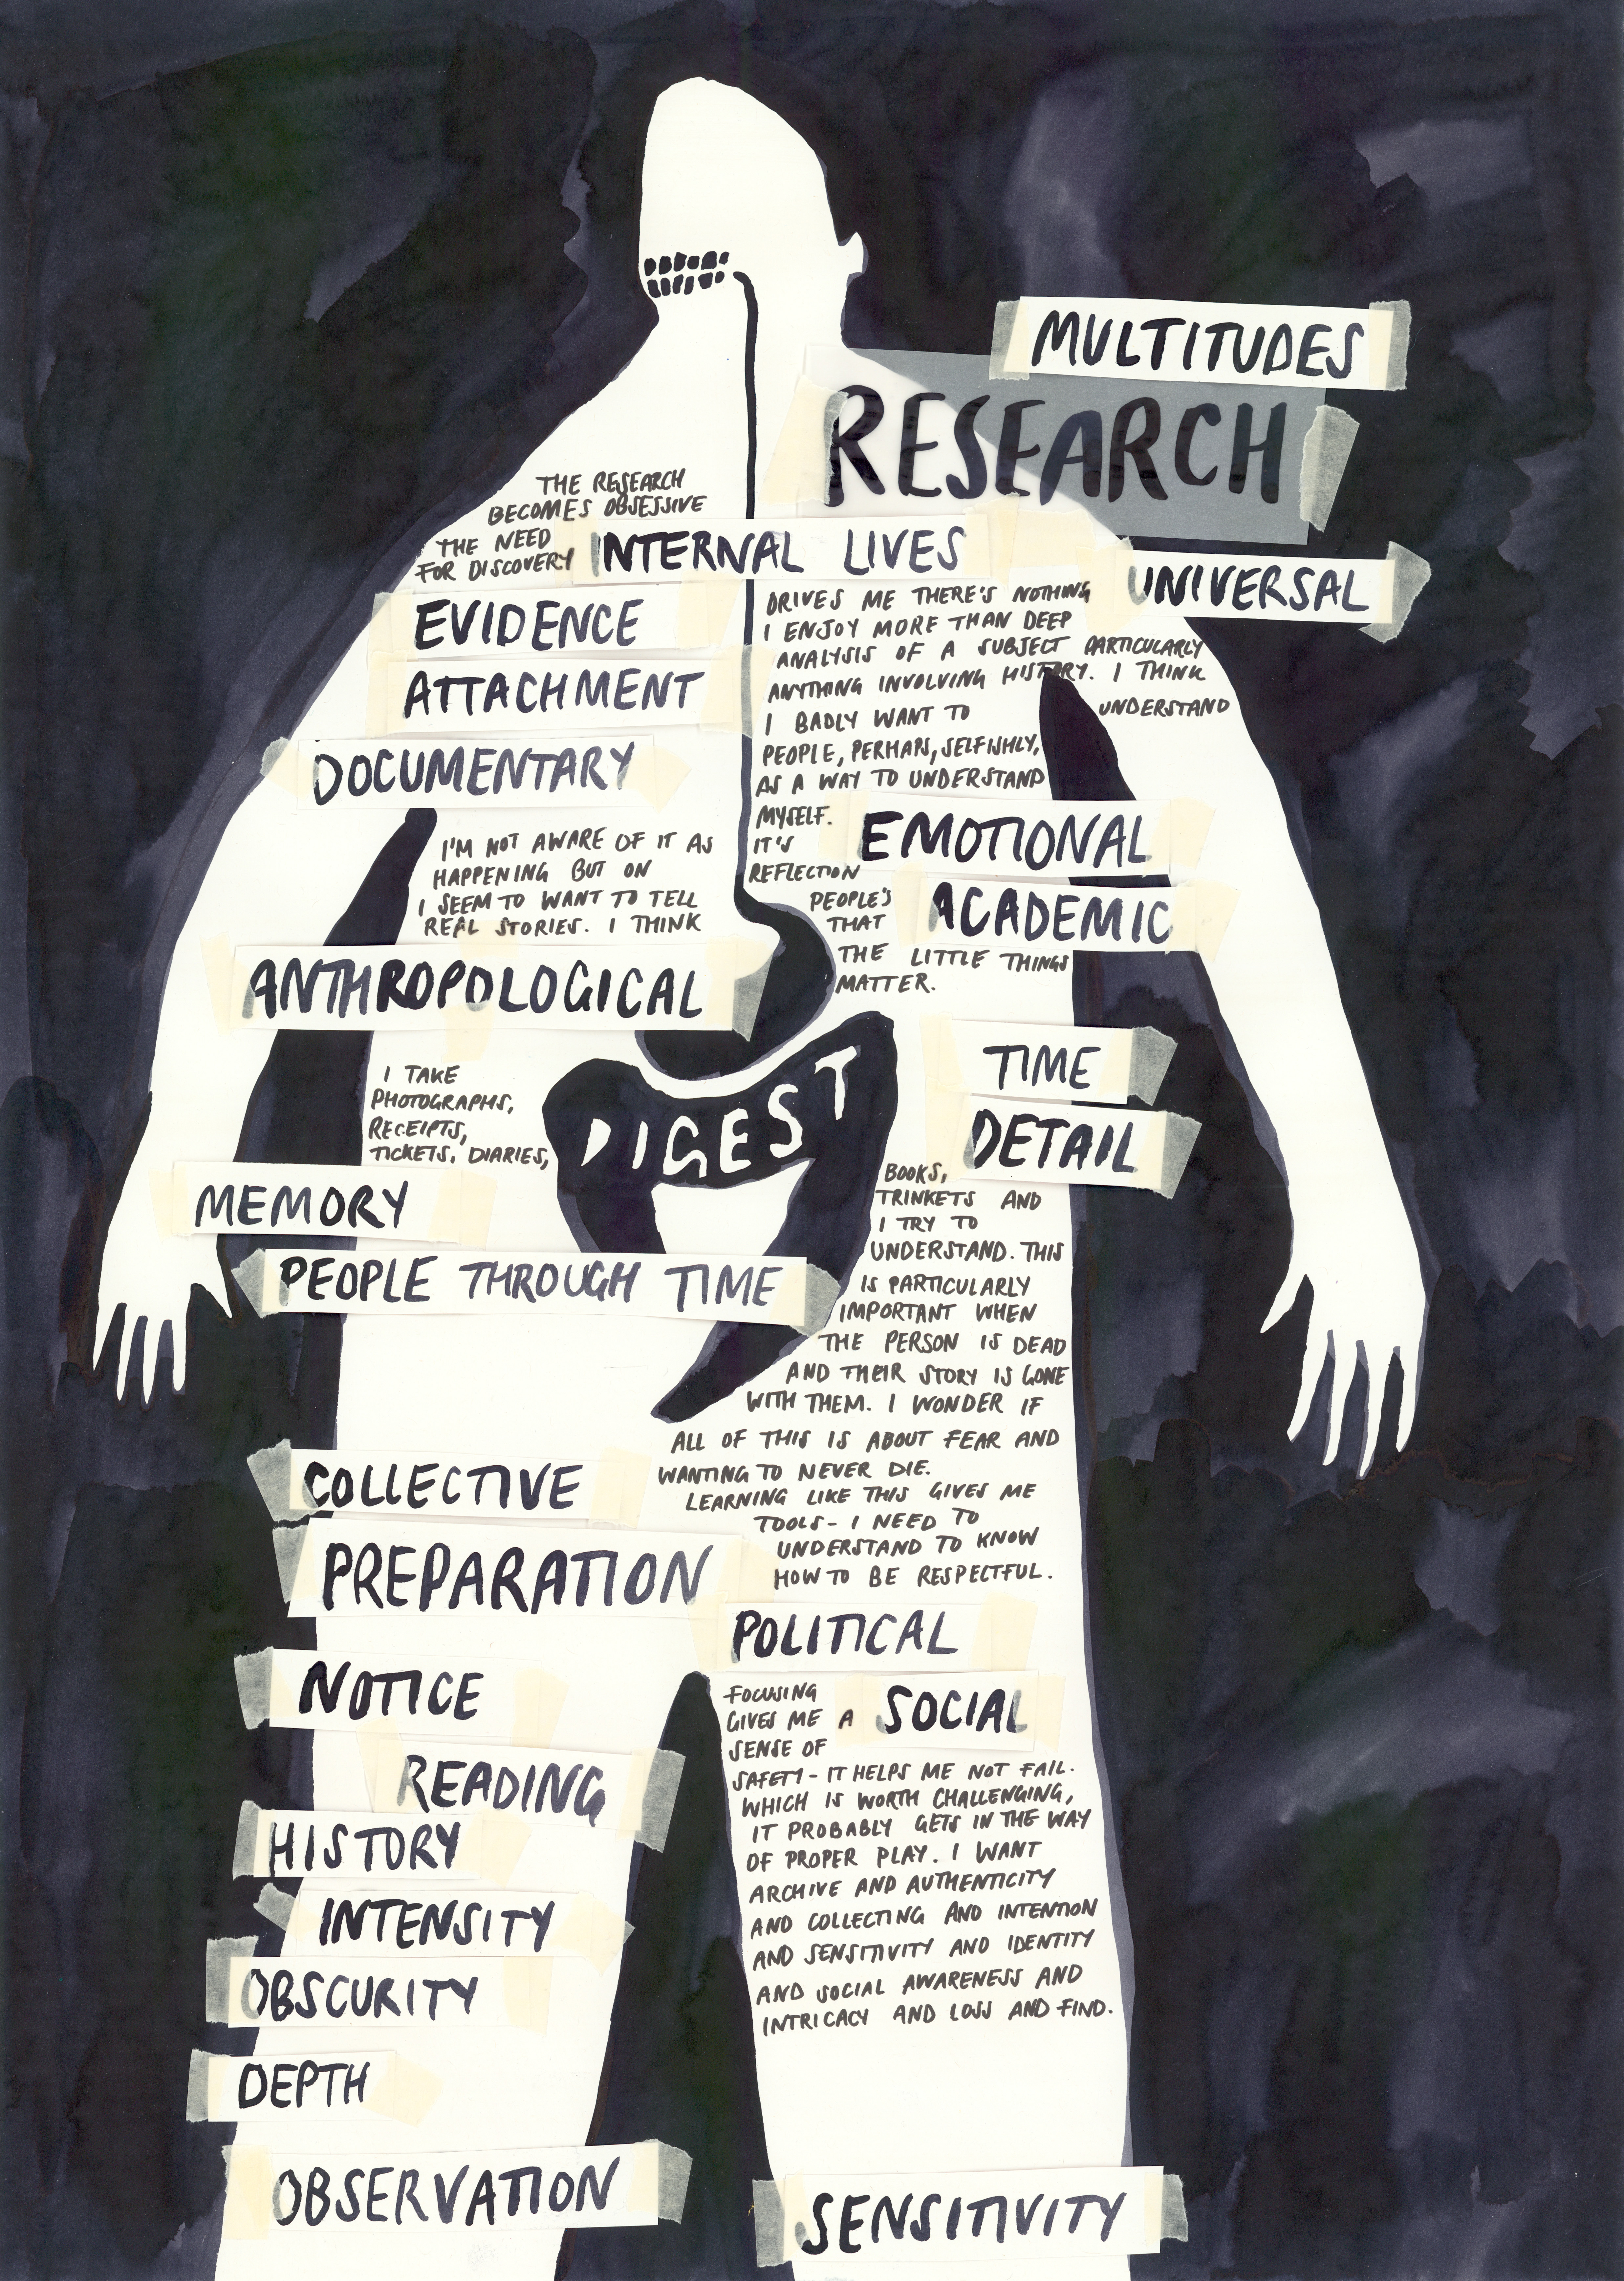 MULTITUDES
RESEARCH
THE RESEARCH
BECOMES OBSESSIVE
THE NEED
FOR DISCOVERY
INTERNAL LIVES
UNIVERSAL
EVIDENCE
ATTACHMENT
DOCUMENTARY
DRIVES ME THERE'S NOTHING
I ENJOY MORE THAN DEEP
ANALYSIS OF A SUBJECT PARTICULARLY
ANYTHING INVOLVING HISTORY. I THINK
I BADLY WANT TO UNDERSTAND
PEOPLE, PERHAPS, SELFISHLY,
AS A WAY TO UNDERSTAND
MYSELF.
IT'S
REFLECTION
EMOTIONAL
ACADEMIC
I'M NOT AWARE OF IT AS
HAPPENING BUT ON
I SEEM TO WANT TO TELL
REAL STORIES. I THINK
PEOPLE'S
THAT
THE LITTLE THINGS
MATTER.
ANTHROPOLOGICAL
DIGEST
TIME
DETAIL
I TAKE
PHOTOGRAPHS,
RECEIPTS,
TICKETS, DIARIES,
MEMORY
PEOPLE THROUGH TIME
BOOKS,
TRINKETS AND
I TRY TO
UNDERSTAND. THIS
IS PARTICULARLY
IMPORTANT WHEN
THE PERSON IS DEAD
AND THEIR STORY IS GONE
WITH THEM. I WONDER IF
ALL OF THIS IS ABOUT FEAR AND
WANTING TO NEVER DIE.
LEARNING LIKE THIS GIVES ME
TOOLS - I NEED TO
UNDERSTAND TO KNOW
HOW TO BE RESPECTFUL.
COLLECTIVE
PREPARATION
POLITICAL
NOTICE
SOCIAL
FOCUSING
GIVES ME A
SENSE OF
SAFETY - IT HELPS ME NOT FAIL.
WHICH IS WORTH CHALLENGING,
IT PROBABLY GETS IN THE WAY
OF PROPER PLAY. I WANT
ARCHIVE AND AUTHENTICITY
AND COLLECTING AND INTENTION
AND SENSITIVITY AND IDENTITY
AND SOCIAL AWARENESS AND
INTRICACY AND LOSS AND FIND.
READING
HISTORY
INTENSITY
OBSCURITY
DEPTH
OBSERVATION
SENSITIVITY